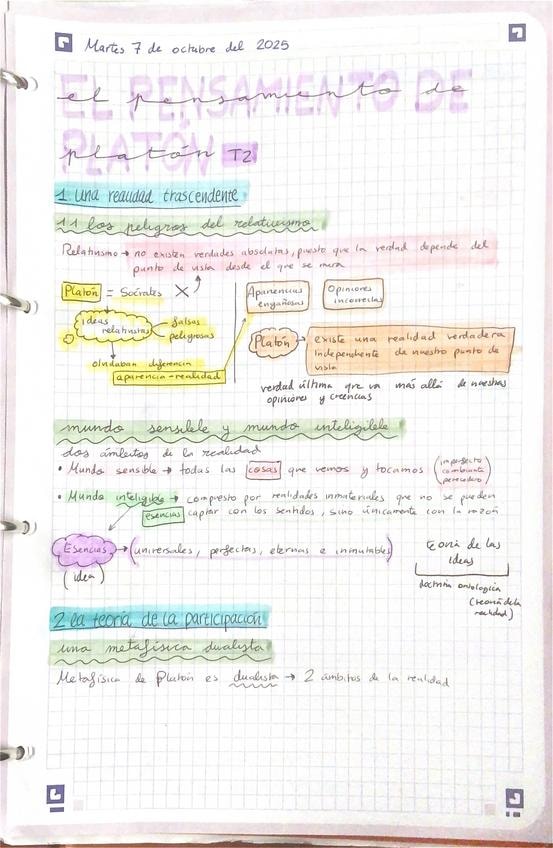 Martes 7 de octubre del 2025
EL PENSAMIENTO DE
el pensamiento de
PLATÓN
platón T2
1 una realidad trascendente
1.1 los peligros del relativismo
Relativismo → no existen verdades absolutas, puesto que la verdad depende del
punto de vista desde el que se mira
Platón = Sócrates X
ideas relativistas
falsas
peligrosas
olvidaban diferencia
aparencia-realidad
Apariencias
engañosas
Opiniones
incorrectas
Platón →
existe una realidad verdadera
independiente de nuestro punto de
vista
verdad última que va más allá de nuestras
opiniones y creencias
mundo sensible y mundo inteligible
dos ámbitos de la realidad
• Mundo sensible → todas las cosas que vemos y tocamos (imperfecto
cambiante
perecedero)
• Mundo inteligible → compuesto por realidades inmateriales que no se pueden
esencias captar con los sentidos, sino únicamente con la razón
Esencias → (universales, perfectas, eternas e inmutables)
(idea)
teoría de las
ideas
doctrina ontológica
(teoría de la
realidad)
2 la teoría de la participación
una metafísica dualista
Metafísica de Platón es dualista → 2 ámbitos de la realidad